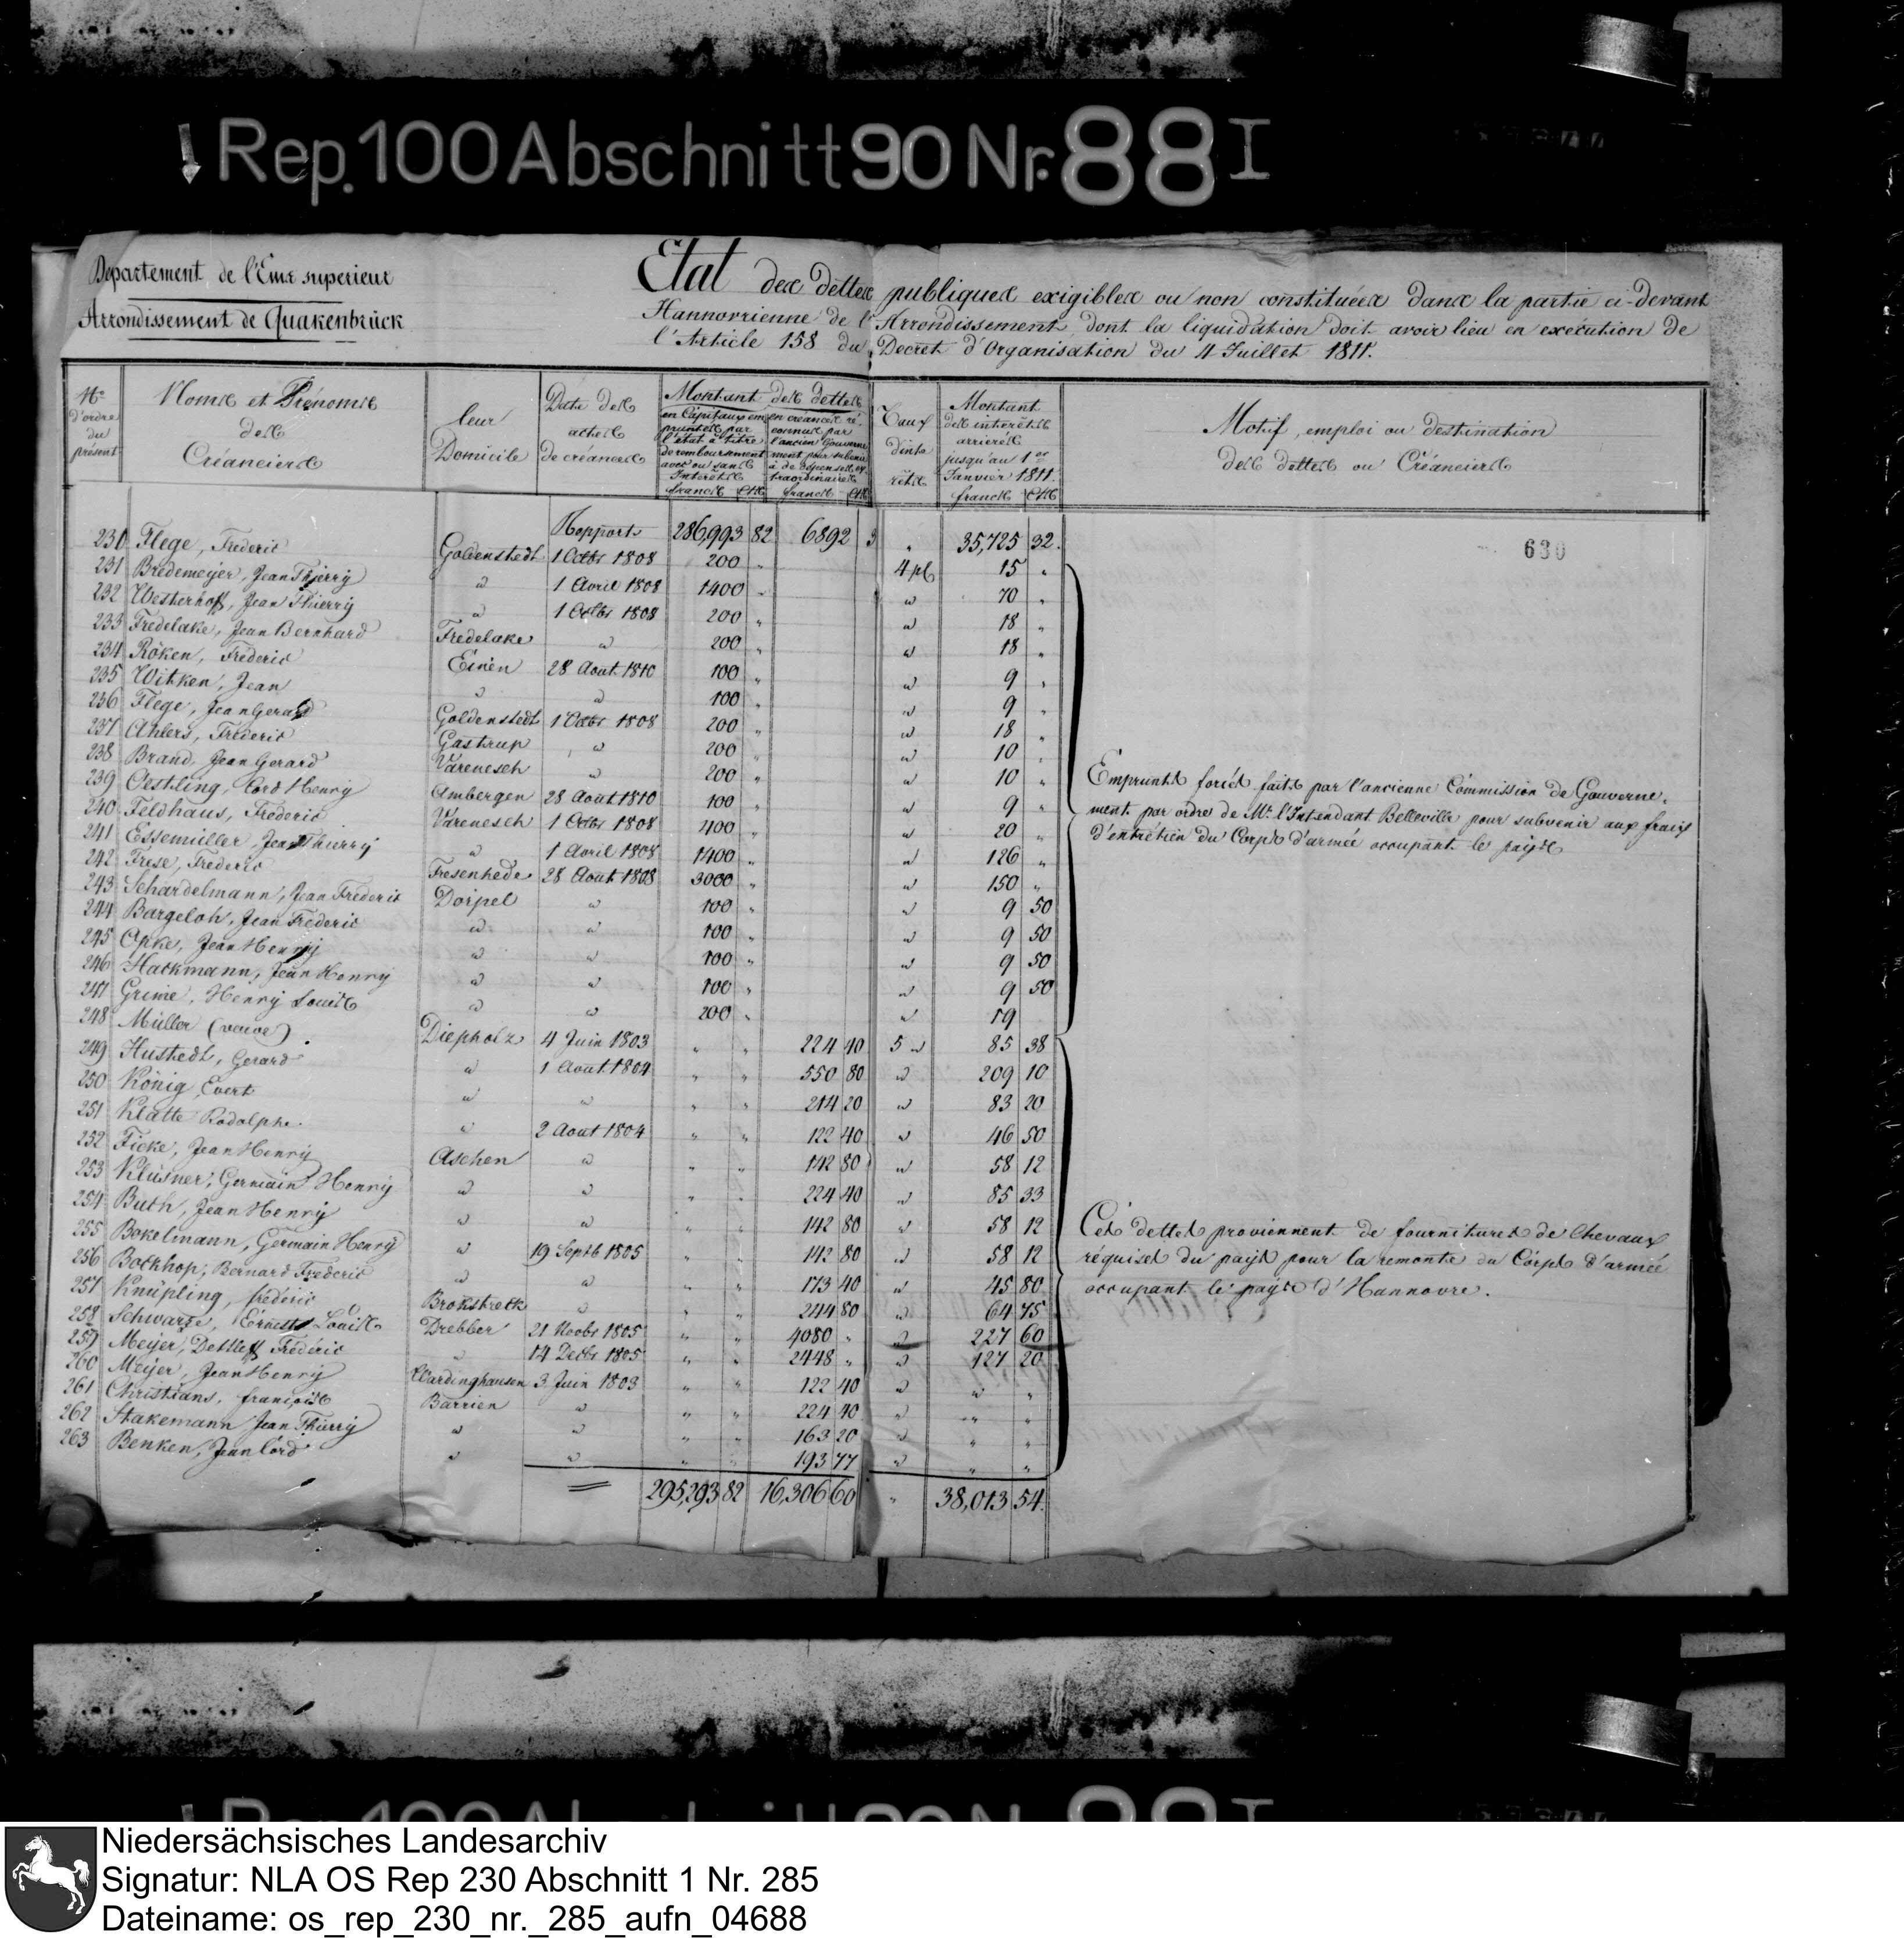 Rep. 100 Abschnitt 90 Nr. 88 I
Departement de l'Ems superieur
Arrondissement de Quakenbrück
Etat des dettes publiques exigibles ou non constituées dans la partie ci-devant
Hannovrienne de l'Arrondissement dont la liquidation doit avoir lieu en exécution de
l'Article 158 du Decret d'Organisation du 4 Juillet 1811.
No d'ordre du présent
Noms et Prénoms des Créanciers
leur Domicile
Date des actes de créances
Montant des dettes
en Capitaux empruntés par l'état à titre de remboursement avec ou sans Interêts
francs cts
en créances reconnus par l'ancien Gouvernement pour subvenir à de dépenses extraordinaires
francs cts
Taux d'interêts
Montant des interêts arrierés jusqu'au 1er Janvier 1811.
francs cts
Motif, emploi ou destination des dettes ou Créanciers
630
Rapport 286,993 82 6892 3 " 35,725 32.
230 Flege, Frederic Goldenstedt 1 Octbr 1808 200 " 4 pC 15 "
231 Bredemeijer, Jean Thierrij " 1 Avril 1808 1400 " " 70 "
232 Westerhoff, Jean Thierrij " 1 Octbr 1808 200 " " 18 "
233 Fredelake, Jean Bernhard Fredelake " 200 " " 18 "
234 Röken, Fréderic Einen 28 Aout 1810 100 " " 9 "
235 Witken, Jean " " 100 " " 9 "
236 Flege, Jean Gerard Goldenstedt 1 Octbr 1808 200 " " 18 "
237 Ahlers, Fréderic Gastrup " 200 " " 10 "
238 Brand, Jean Gerard Varenesch " 200 " " 10 "
239 Oestling, Cord Henry Ambergen 28 Aout 1810 100 " " 9 "
240 Feldhaus, Frederic Varenesch 1 Octbr 1808 400 " " 20 "
241 Essemüller Jean Thierrij " 1 Avril 1808 1400 " " 126 "
242 Frese, Frederic Fresenhede 28 Aout 1808 3000 " " 150 "
243 Schardelmann, Jean Frederic Dörpel " 100 " " 9 50
244 Bargeloh, Jean Fréderic " " 100 " " 9 50
245 Opke, Jean Henrij " " 100 " " 9 50
246 Hackmann, Jean Henrij " " 100 " " 9 50
247 Grime, Henrij Louis " " 200 " " 19
Emprunts forcés faits par l'ancienne Commission de Gouverne-
ment par ordre de Mr. l'Intendant Belleville pour subvenir aux frais
d'entrétien du Corps d'armée occupant le pays
248 Müller (veuve) Diepholz 4 Juin 1803 " " 224 40 5 " 85 38
249 Hustedt, Gerard " 1 Aout 1804 " " 550 80 " 209 10
250 König, Evert " " " " 214 20 " 83 20
251 Klatte Rodolphe. " 2 Aout 1804 " " 122 40 " 46 50
252 Ficke, Jean Henrij Aschen " " " 142 80 " 58 12
253 Klüsner, Germain Henrij " " " " 224 40 " 85 33
254 Buth, Jean Henrij " " " " 142 80 " 58 12
255 Bokelmann, Germain Henrij " 19 Septb 1805 " " 142 80 " 58 12
256 Bockhop, Bernard Frederic " " " " 173 40 " 45 80
257 Knüpling, fréderic Brokstreck " " " 244 80 " 64 75
258 Schwarze, Ernest Louis Drebber 21 Novbr 1805 " " 4080 " " 227 60
259 Meijer, Detleff Fréderic " 14 Decbr 1805 " " 2448 " " 127 20
260 Meijer, Jean Henrij Wardinghausen 3 Juin 1803 " " 122 40 " " "
261 Christians, françois Barrien " " " 224 40 " " "
262 Stakemann Jean Thierrij " " " " 163 20 " " "
263 Benken, Jean Cord " " " " 193 77 " " "
Ces dettes proviennent de fournitures de Chevaux
réquises du pays pour la remonte du Corps d'armée
occupant le pays d'Hannovre.
295,293 82 16,306 60 " 38,013 54.
Niedersächsisches Landesarchiv
Signatur: NLA OS Rep 230 Abschnitt 1 Nr. 285
Dateiname: os_rep_230_nr._285_aufn_04688